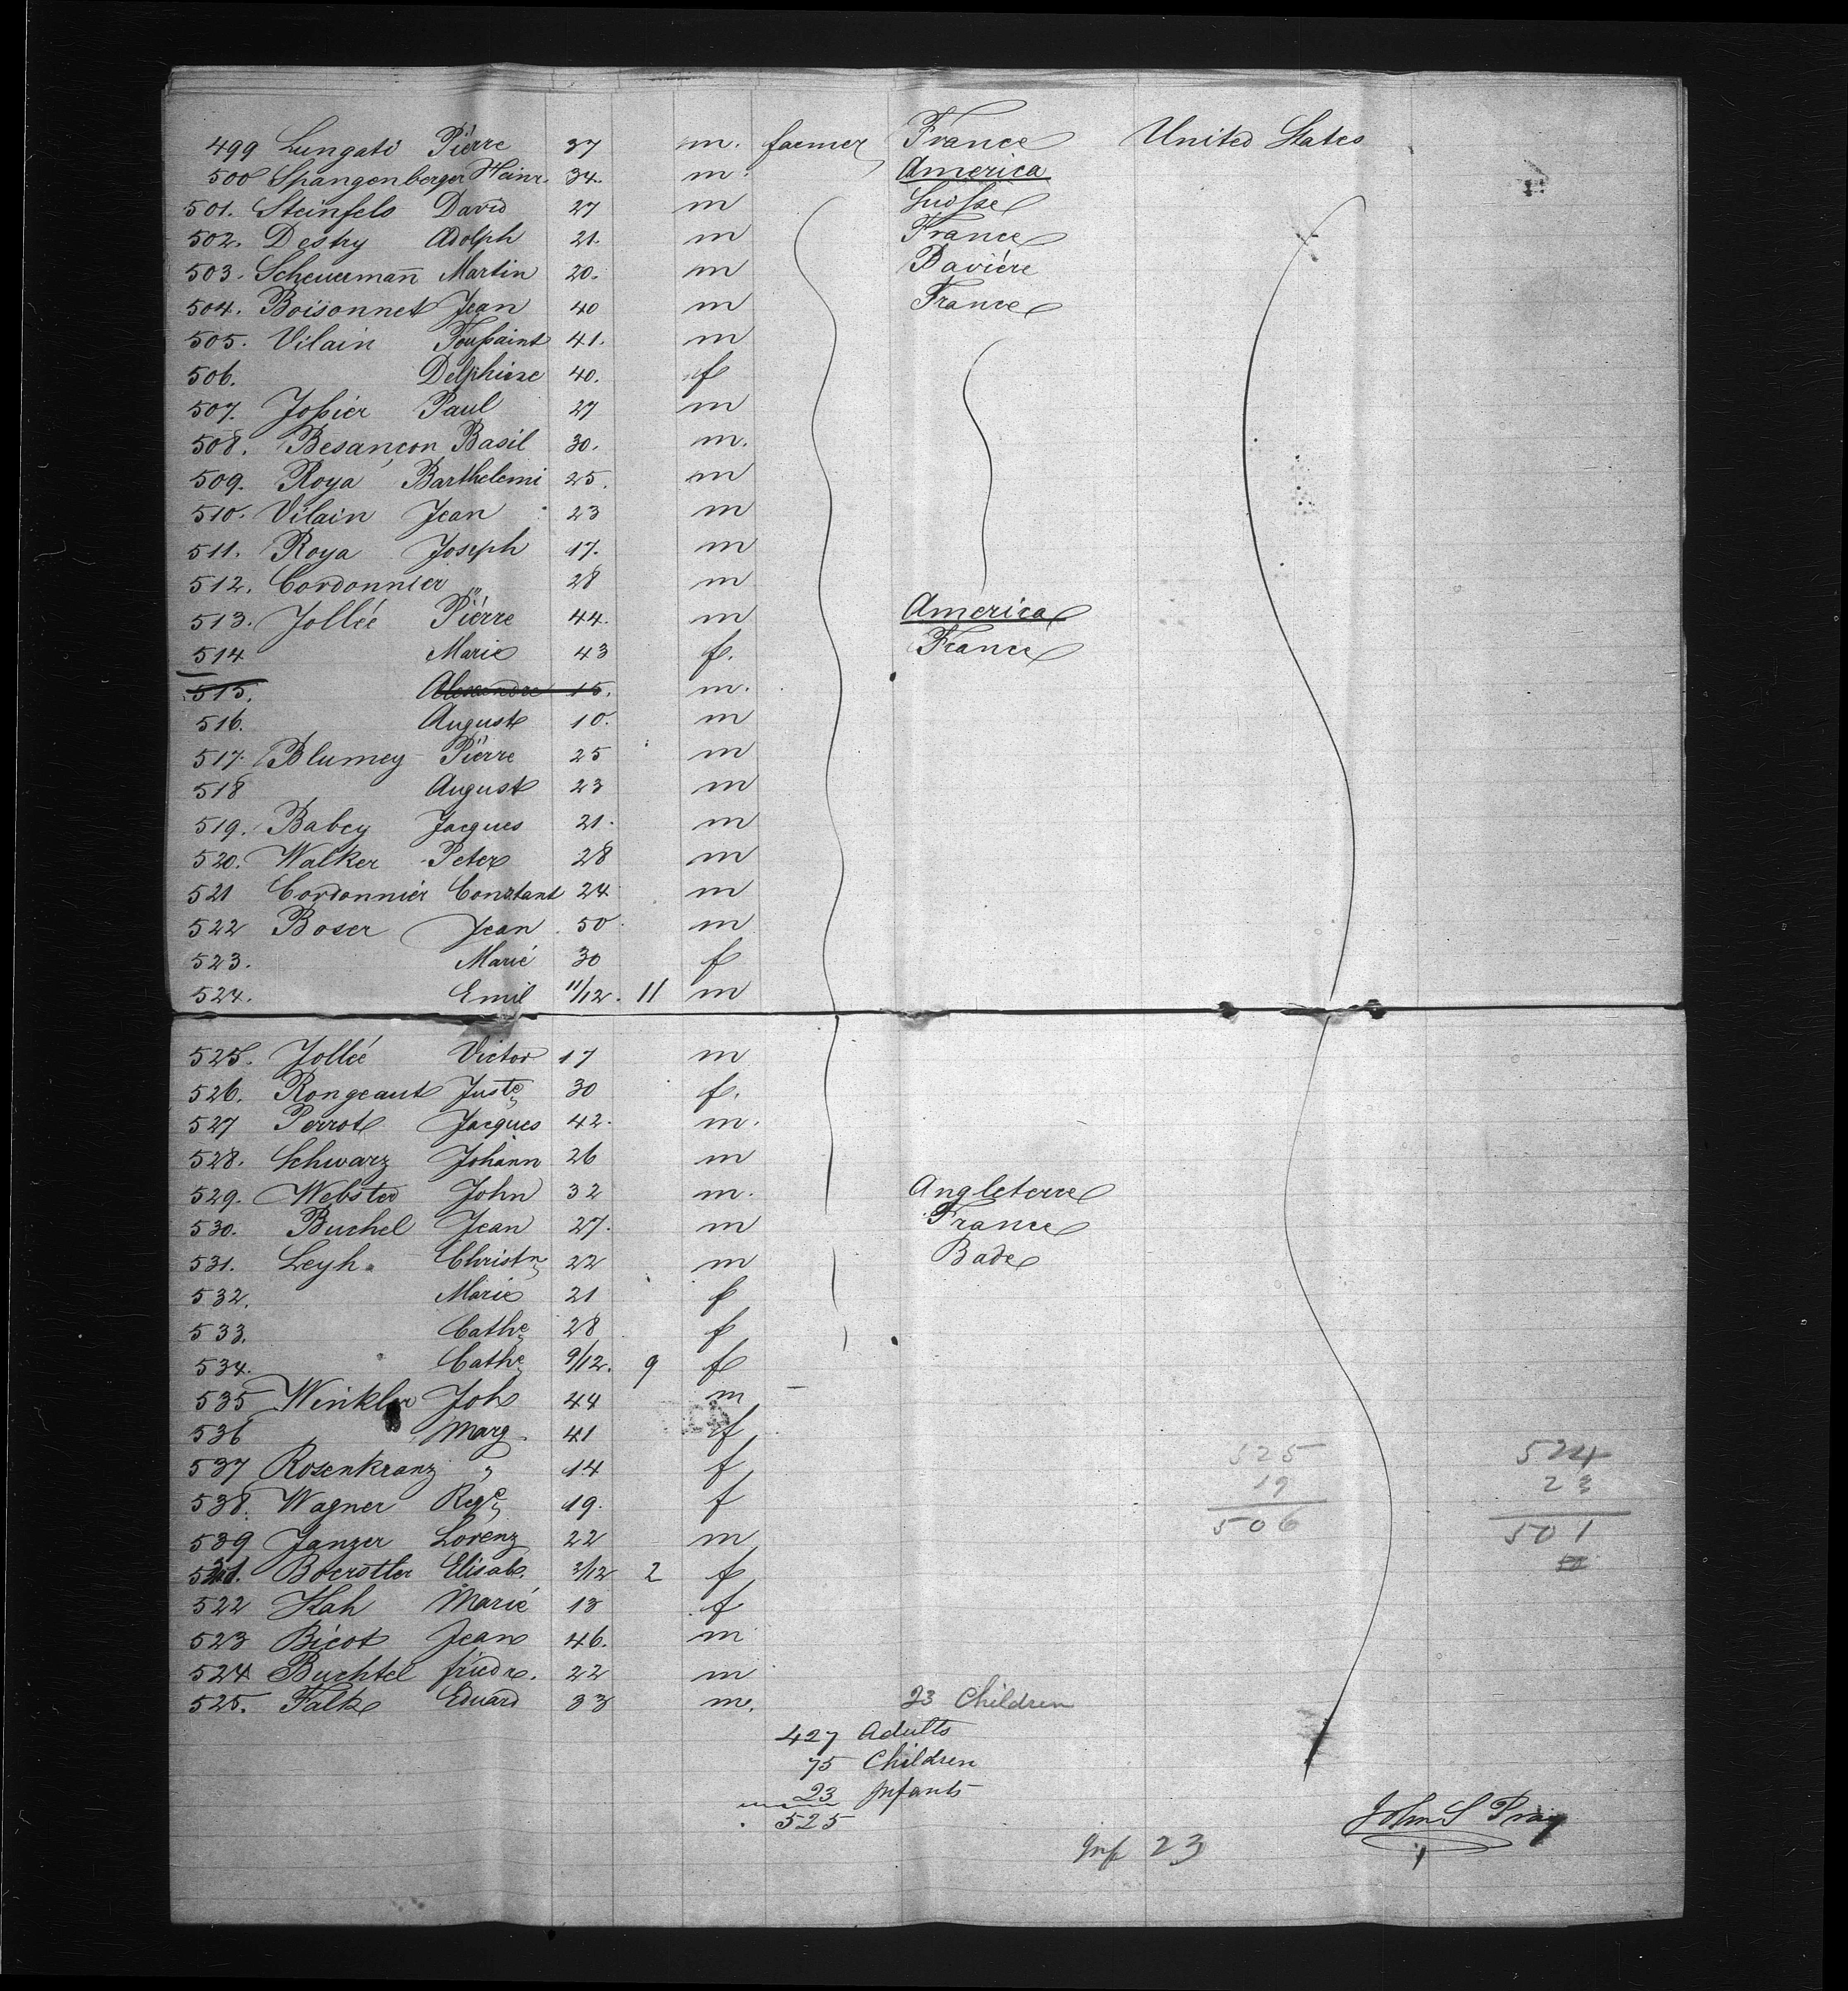 499 Lungati Piérre 37 m. farmer France United States
500 Spangenberger Heinr. 34. m. America
501. Steinfels David 27 m Suisse
502. Destry Adolph 21. m France
503. Scheuermañ Martin 20. m Baviére
504. Boisonnet Jean 40 m France
505. Vilain Toussaint 41. m
506. Delphine 40. f
507. Jossier Paul 27 m
508. Besançon Basil 30. m.
509. Roya Barthelemi 25. m
510. Vilain Jean 23 m
511. Roya Joseph 17. m
512. Cordonnier " 28 m
513. Jolléé Piérre 44. m America
514 Marie 43 f. France
515. Alexandre 15. m.
516. August 10. m
517. Blumey Piérre 25 m
518 August 23 m
519. Babey Jacques 21. m
520. Walker Peter 28 m
521 Cordonniér Constant 24 m
522 Boser Jean 50 m
523. Marié 30 f
524. Emil 11/12. 11 m
525. Jolléé Victor 17 m
526. Rongeaut Juste 30 f.
527 Perrot Jacques 42. m.
528. Schwarz Johann 26 m
529. Webster John 32 m. Angleterre
530. Buchel Jean 27. m France
531. Leyh. Christn 22 m Bade
532. Marie 21 f
533. Cathe 28 f
534. Cathe 9/12. 9 f
535 Winkler Joh 44 m
536 Marg. 41 f
537 Rosenkranz " 14 f
538. Wagner Rege 19. f
539 Janzer Lorenz 22 m
521. Boerstler Elisab. 2/12 2 f
522 Kah Marié 13 f
523 Bicot Jean 46. m
524 Buchtel friedr. 22 m
525. Falk Eduard 33 m.
525 524
19 23
506 501
23 Children
427 Adults
75 Children
23 Infants
525
Inf 23
John S Pray